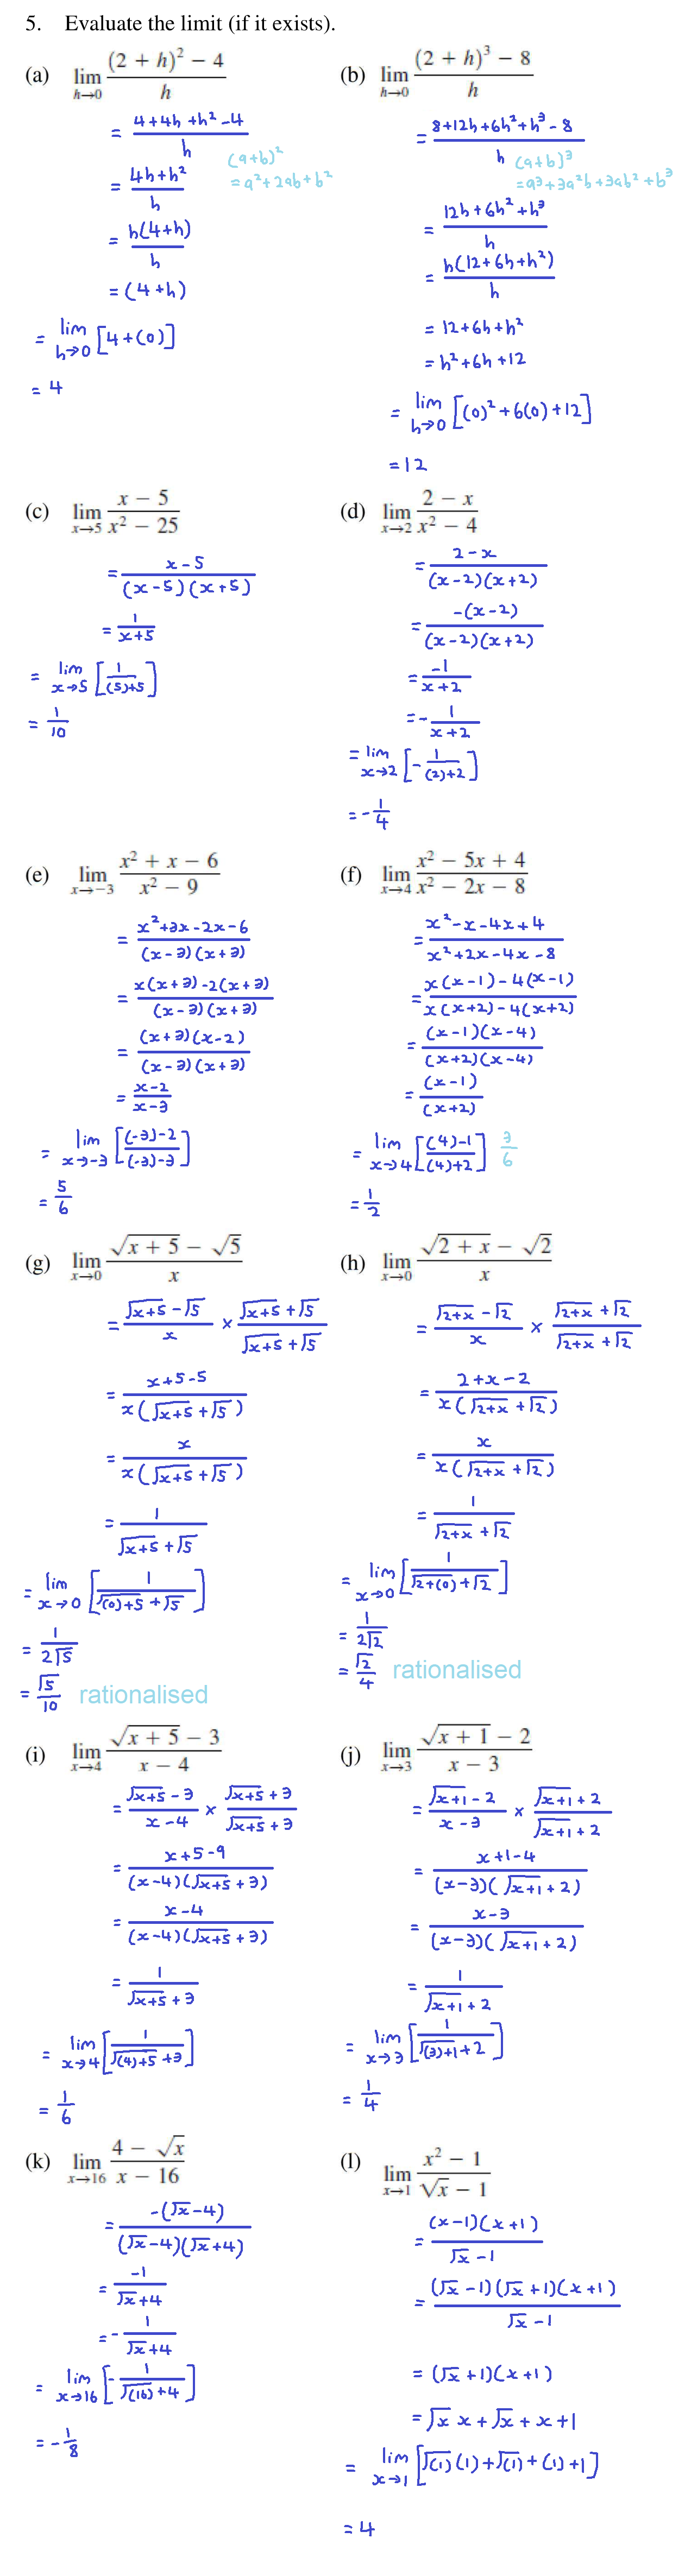 5. Evaluate the limit (if it exists).
(a) lim h→0 ((2 + h)² − 4)/h
= (4+4h+h²−4)/h
(a+b)²
= a²+2ab+b²
= (4h+h²)/h
= h(4+h)/h
= (4+h)
= lim h→0 [4+(0)]
= 4
(b) lim h→0 ((2 + h)³ − 8)/h
= (8+12h+6h²+h³−8)/h
(a+b)³
= a³+3a²b+3ab²+b³
= (12h+6h²+h³)/h
= h(12+6h+h²)/h
= 12+6h+h²
= h²+6h+12
= lim h→0 [(0)²+6(0)+12]
= 12
(c) lim x→5 (x − 5)/(x² − 25)
= (x−5)/((x−5)(x+5))
= 1/(x+5)
= lim x→5 [1/((5)+5)]
= 1/10
(d) lim x→2 (2 − x)/(x² − 4)
= (2−x)/((x−2)(x+2))
= −(x−2)/((x−2)(x+2))
= −1/(x+2)
= − 1/(x+2)
= lim x→2 [− 1/((2)+2)]
= − 1/4
(e) lim x→−3 (x² + x − 6)/(x² − 9)
= (x²+3x−2x−6)/((x−3)(x+3))
= (x(x+3)−2(x+3))/((x−3)(x+3))
= ((x+3)(x−2))/((x−3)(x+3))
= (x−2)/(x−3)
= lim x→−3 [((−3)−2)/((−3)−3)]
= 5/6
(f) lim x→4 (x² − 5x + 4)/(x² − 2x − 8)
= (x²−x−4x+4)/(x²+2x−4x−8)
= (x(x−1)−4(x−1))/(x(x+2)−4(x+2))
= ((x−1)(x−4))/((x+2)(x−4))
= (x−1)/(x+2)
= lim x→4 [((4)−1)/((4)+2)] 3/6
= 1/2
(g) lim x→0 (√(x + 5) − √5)/x
= (√(x+5) − √5)/x × (√(x+5) + √5)/(√(x+5) + √5)
= (x+5−5)/(x(√(x+5) + √5))
= x/(x(√(x+5) + √5))
= 1/(√(x+5) + √5)
= lim x→0 [1/(√((0)+5) + √5)]
= 1/(2√5)
= √5/10 rationalised
(h) lim x→0 (√(2 + x) − √2)/x
= (√(2+x) − √2)/x × (√(2+x) + √2)/(√(2+x) + √2)
= (2+x−2)/(x(√(2+x) + √2))
= x/(x(√(2+x) + √2))
= 1/(√(2+x) + √2)
= lim x→0 [1/(√(2+(0)) + √2)]
= 1/(2√2)
= √2/4 rationalised
(i) lim x→4 (√(x + 5) − 3)/(x − 4)
= (√(x+5) − 3)/(x−4) × (√(x+5) + 3)/(√(x+5) + 3)
= (x+5−9)/((x−4)(√(x+5) + 3))
= (x−4)/((x−4)(√(x+5) + 3))
= 1/(√(x+5) + 3)
= lim x→4 [1/(√((4)+5) + 3)]
= 1/6
(j) lim x→3 (√(x + 1) − 2)/(x − 3)
= (√(x+1) − 2)/(x−3) × (√(x+1) + 2)/(√(x+1) + 2)
= (x+1−4)/((x−3)(√(x+1) + 2))
= (x−3)/((x−3)(√(x+1) + 2))
= 1/(√(x+1) + 2)
= lim x→3 [1/(√((3)+1) + 2)]
= 1/4
(k) lim x→16 (4 − √x)/(x − 16)
= −(√x−4)/((√x−4)(√x+4))
= −1/(√x+4)
= − 1/(√x+4)
= lim x→16 [− 1/(√(16) + 4)]
= − 1/8
(l) lim x→1 (x² − 1)/(√x − 1)
= ((x−1)(x+1))/(√x −1)
= ((√x −1)(√x +1)(x+1))/(√x −1)
= (√x +1)(x+1)
= √x x + √x + x + 1
= lim x→1 [√(1) (1) + √(1) + (1) + 1]
= 4